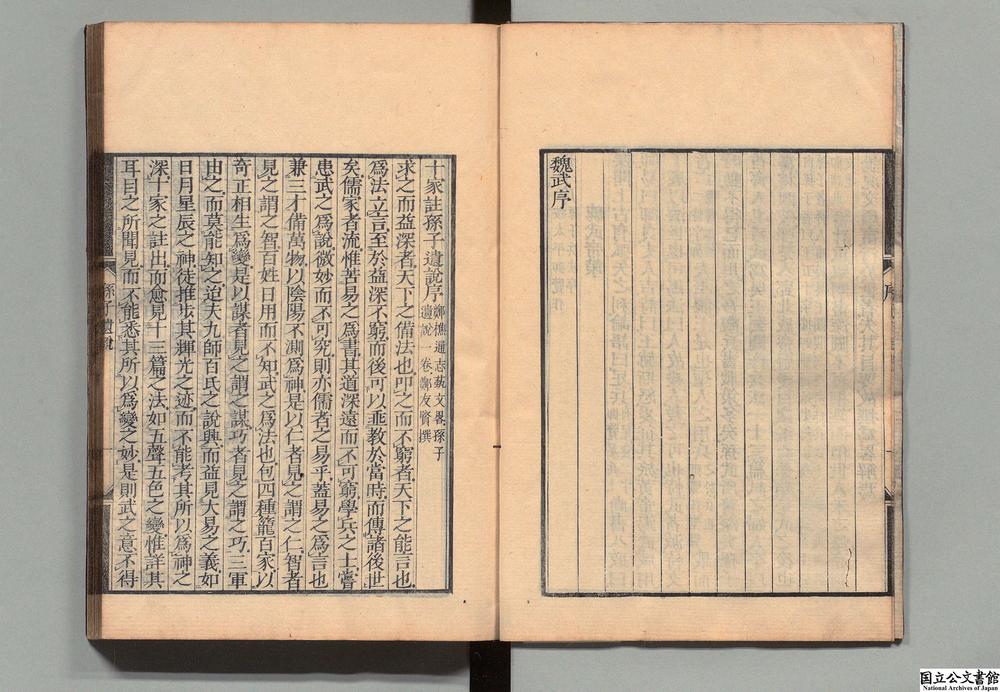 魏武序
十家註孫子遺說序
鄭樵通志藝文畧孫子
遺說一卷鄭友賢撰
求之而益深者天下之備法也叩之而不窮者天下之能言也
爲法立言至於益深不窮而後可以垂教於當時而傳諸後世
矣儒家者流惟苦易之爲書其道深遠而不可窮學兵之士嘗
患武之爲說微妙而不可究則亦儒者之易乎蓋易之爲言也
兼三才備萬物以陰陽不測爲神是以仁者見之謂之仁智者
見之謂之智百姓日用而不知武之爲法也包四種籠百家以
奇正相生爲變是以謀者見之謂之謀巧者見之謂之巧三軍
由之而莫能知之迨夫九師百氏之說興而益見大易之義如
日月星辰之神徒推步其輝光之迹而不能考其所以爲神之
深十家之註出而愈見十三篇之法如五聲五色之變惟詳其
耳目之所聞見而不能悉其所以爲變之妙是則武之意不得
孫子遺說
序
国立公文書館
National Archives of Japan